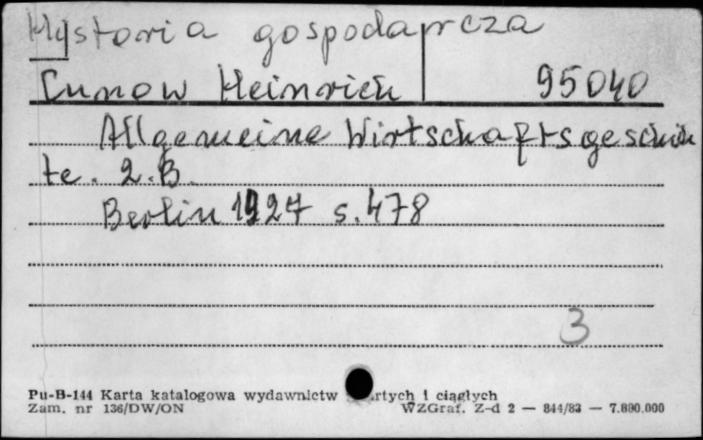 Hystoria gospodarcza
Cunow Heinrich 95040
Allgemeine Wirtschaftsgeschich
te. 2.B.
Berlin 1927 s. 478
3
Pu-B-144 Karta katalogowa wydawnictw rtych i ciągłych
Zam. nr 136/DW/ON WZGraf. Z-d 2 — 844/83 — 7.800.000